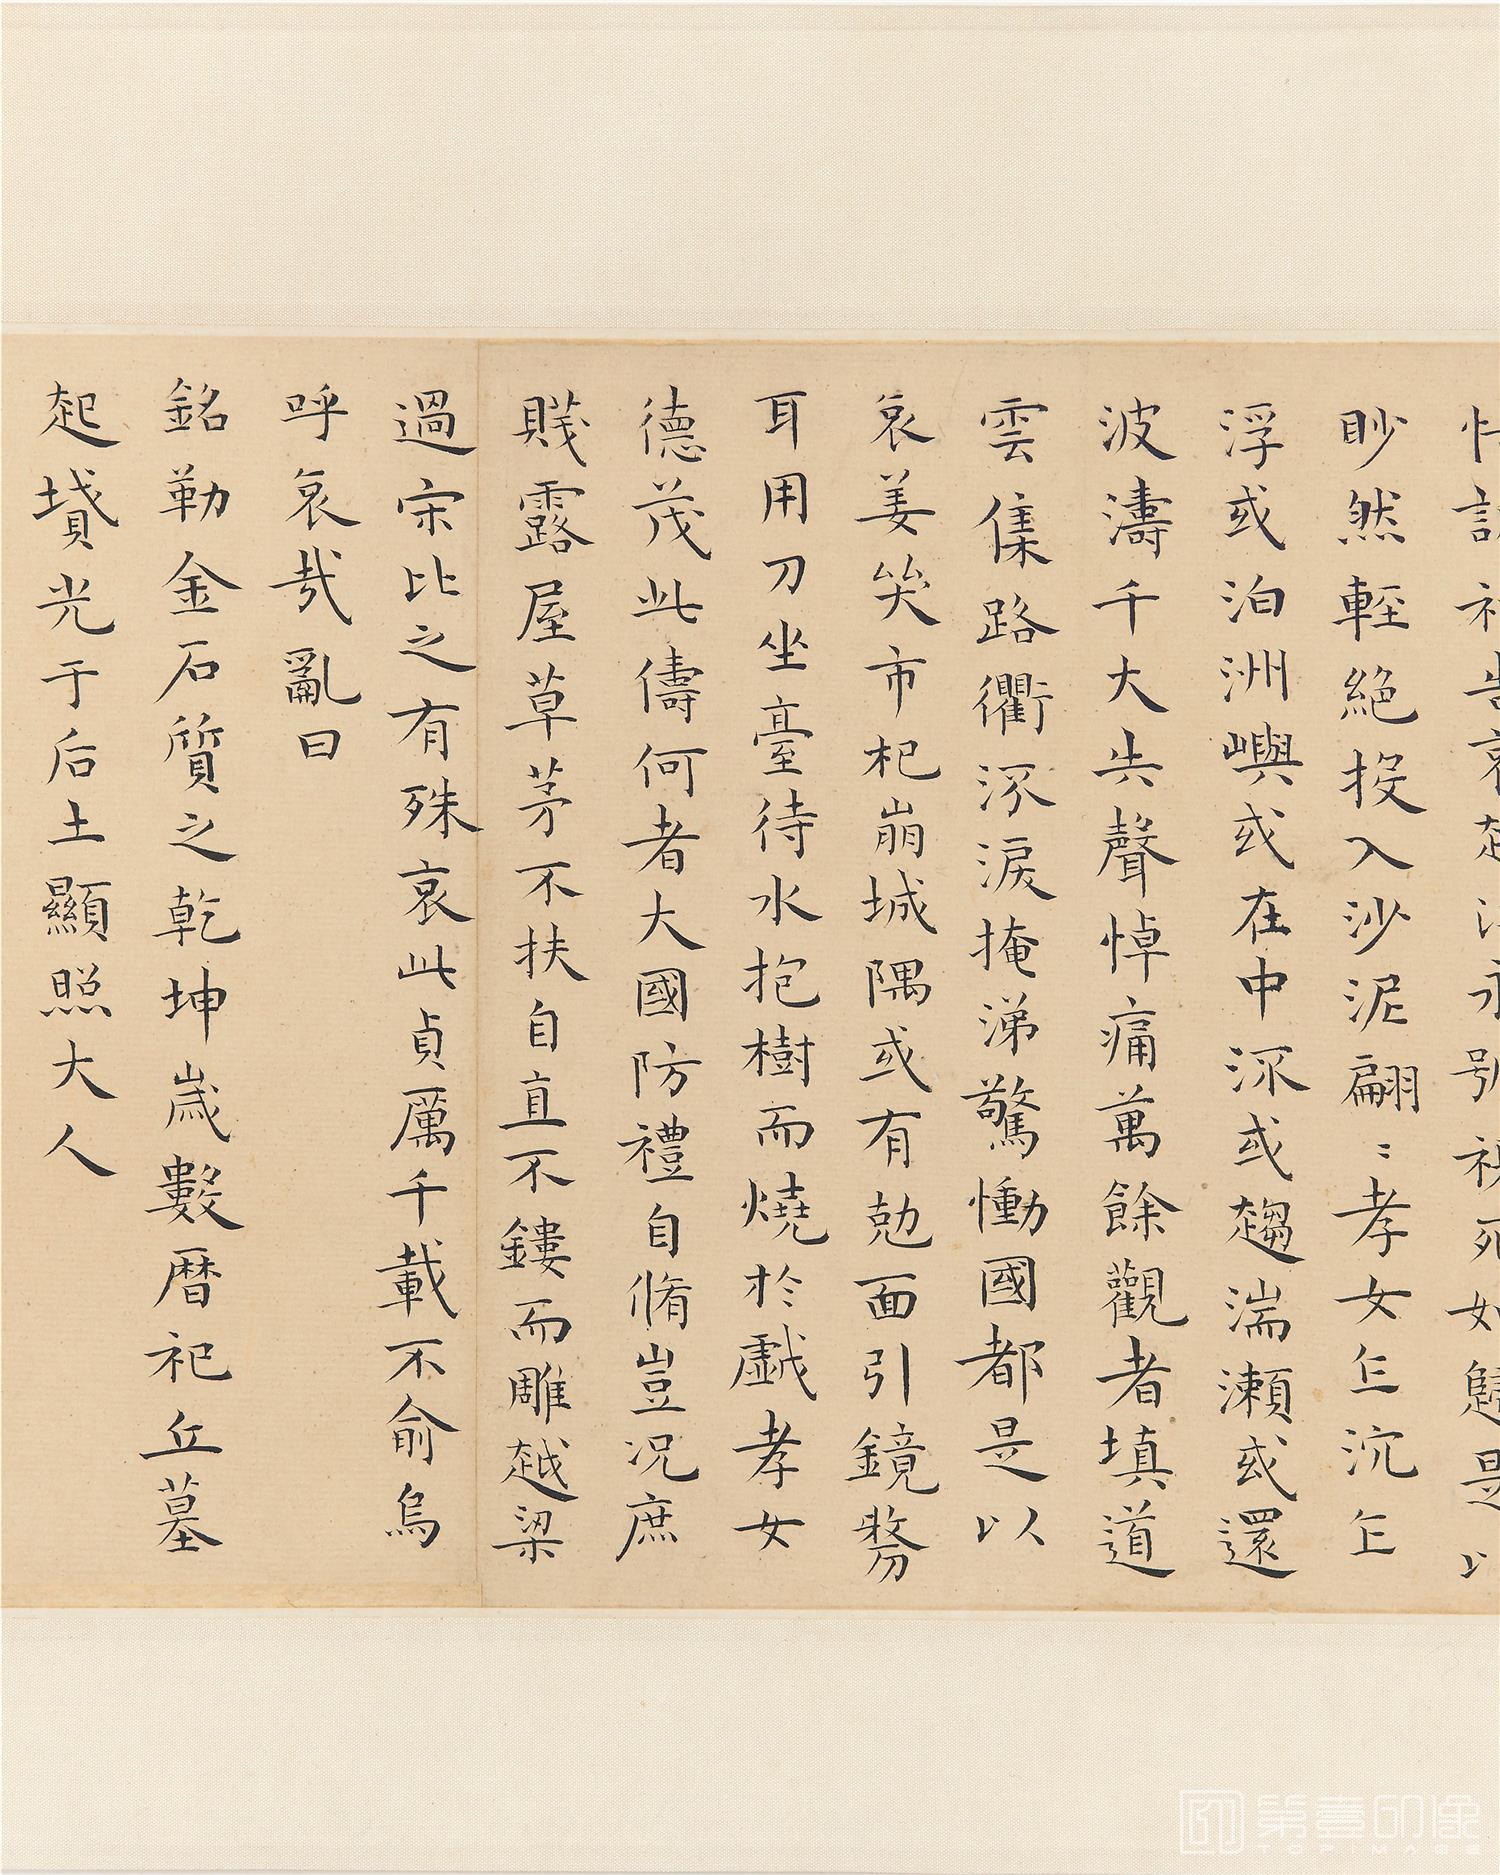 告哀赴江永號視死如歸是以
眇然輕絕投入沙泥翩〻孝女乍沉乍
浮或泊洲嶼或在中流或趨湍瀨或還
波濤千大失聲悼痛萬餘觀者填道
雲集路衢流淚掩涕驚慟國都是以
哀姜哭市杞崩城隅或有勊面引鏡剺
耳用刀坐臺待水抱樹而燒於戲孝女
德茂此儔何者大國防禮自脩豈況庶
賤露屋草茅不扶自直不鏤而雕越梁
過宋比之有殊哀此貞厲千載不俞烏
呼哀哉亂曰
銘勒金石質之乾坤歲數曆祀丘墓
起墳光于后土顯照大人
第壹印像
TOPIMAGE